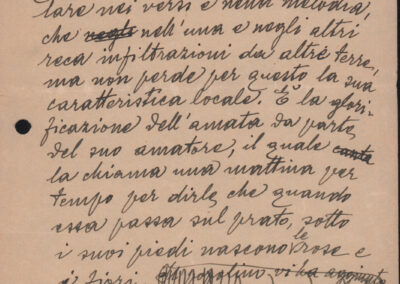 lare nei versi e nella melodia,
che negli nell'una e negli altri
reca infiltrazioni da altre terre,
ma non perde per questo la sua
caratteristica locale. È la glori-
ficazione dell'amata da parte
del suo amatore, il quale canta
la chiama una mattina per
tempo per dirle che quando
essa passa sul prato, sotto
i suoi piedi nascono le rose e
i fiori.